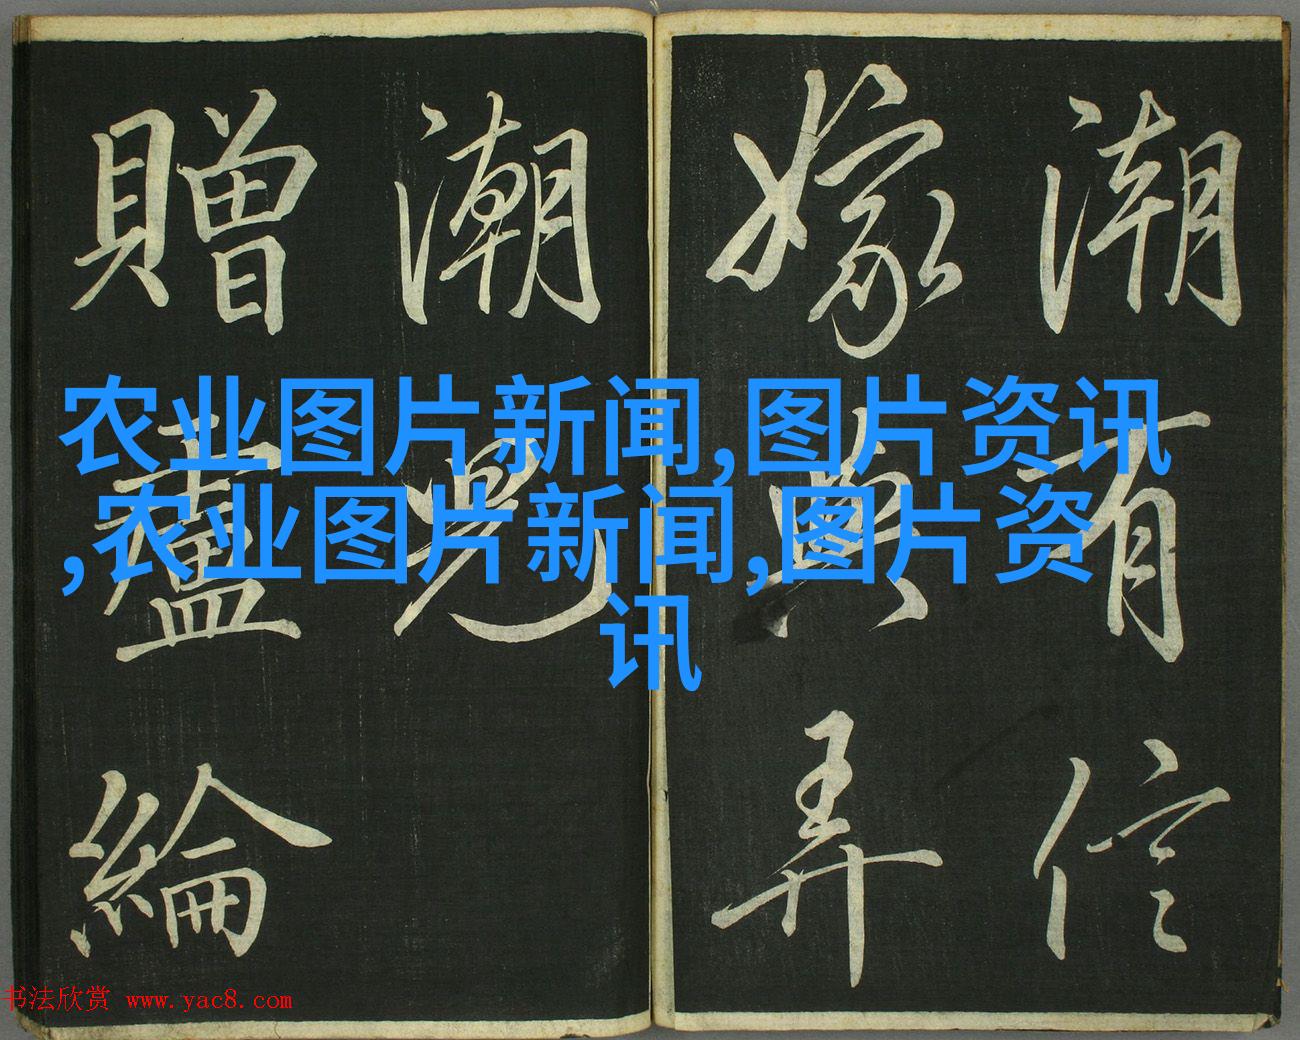 潮有信
嫁與弄
潮兒
贈盧綸
农业图片新闻,图片资讯
,农业图片新闻,图片资
讯
书法欣赏 www.yac8.com